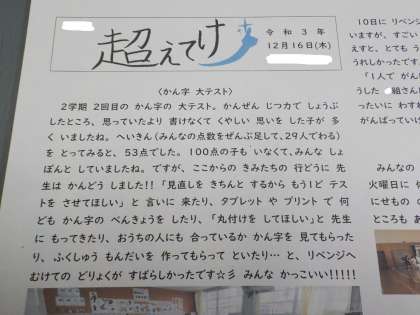 超えてけ
令和3年
12月16日(木)
〈かん字 大テスト〉
2学期 2回目の かん字の 大テスト。かんぜん じつカで しょうぶ
したところ、思っていたより 書けなくて くやしい 思いを した子が 多
く いましたね。へいきん(みんなの点数をぜんぶ足して、29人でわる)
を とってみると、53点でした。100点の子も いなくて、みんな しょ
ぼんと していましたね。ですが、ここからの きみたちの 行どうに 先
生は かんどう しました!!「見直しを きちんと するから もう1ど テスト
を させてほしい」と 言いに 来たり、タブレットや プリントで 何
ども かん字の べんきょうを したり、「丸付けを してほしい」と 先生
に もってきたり、おうちの人にも 合っているか かん字を 見てもらった
り、ふくしゅう もんだいを 作ってもらって といたり…と、リベンジへ
むけての どりょくが すばらしかったです☆彡 みんな かっこいい!!!!!
10日に リベンジ
いますが、すごい
えすと、とても う
うれしかったです。
「1人で がん
うした
組さん
ったいに わすれ
がんばっていけ
みんなの
火曜日に
にせもの
ところも あ